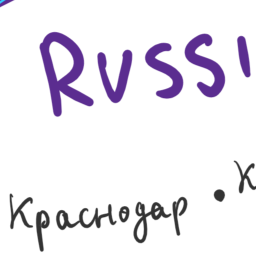 RUSSI
Краснодар • К